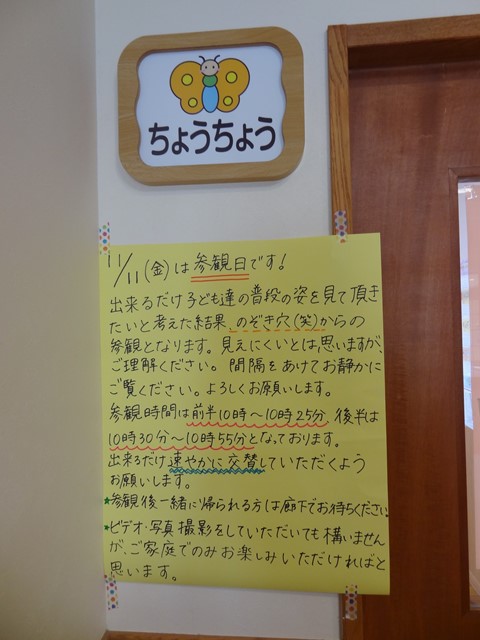 ちょうちょう
11/11(金)は参観日です!
出来るだけ子ども達の普段の姿を見て頂き
たいと考えた結果、のぞき穴(笑)からの
参観となります。見えにくいとは思いますが、
ご理解ください。間隔をあけてお静かに
ご覧ください。よろしくお願いします。
参観時間は前半10時〜10時25分、後半は
10時30分〜10時55分となっております。
出来るだけ速やかに交替していただくよう
お願いします。
★参観後一緒に帰られる方は廊下でお待ちください
★ビデオ・写真撮影をしていただいても構いません
が、ご家庭でのみお楽しみいただければと
思います。